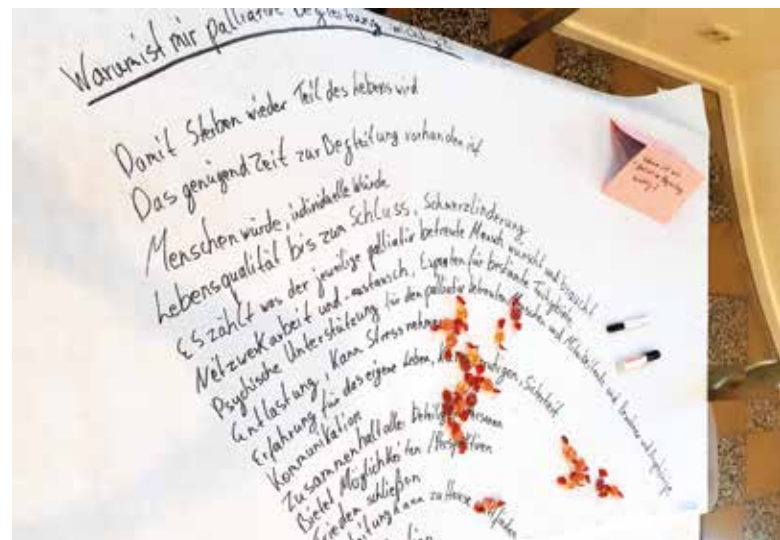 Warum ist mir palliative Begleitung wichtig?
Damit Sterben wieder Teil des Lebens wird
Das genügend Zeit zur Begleitung vorhanden ist
Menschenwürde, individuelle Würde
Lebensqualität bis zum Schluss, Schmerzlinderung
Es zählt was der jeweilige palliativ betreute Mensch wünscht und braucht
Netzwerkarbeit und -austausch, Experten für bestimmte Teilgebiete
Psychische Unterstützung für den palliativ betreuten Menschen und Mitarbeitende und
Entlastung, kann Stress nehmen
Erfahrung für das eigene Leben, Sicherheit
Kommunikation
Zusammenhalt aller beteiligten Personen
Bietet Möglichkeiten / Perspektiven
Frieden schließen
kann zu Hause